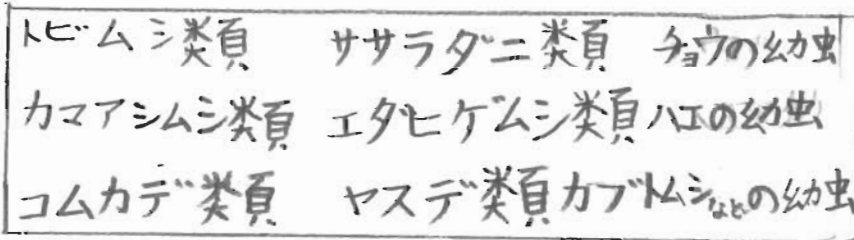 トビムシ類 ササラダニ類 チョウの幼虫
カマアシムシ類 エダヒゲムシ類 ハエの幼虫
コムカデ類 ヤスデ類 カブトムシなどの幼虫